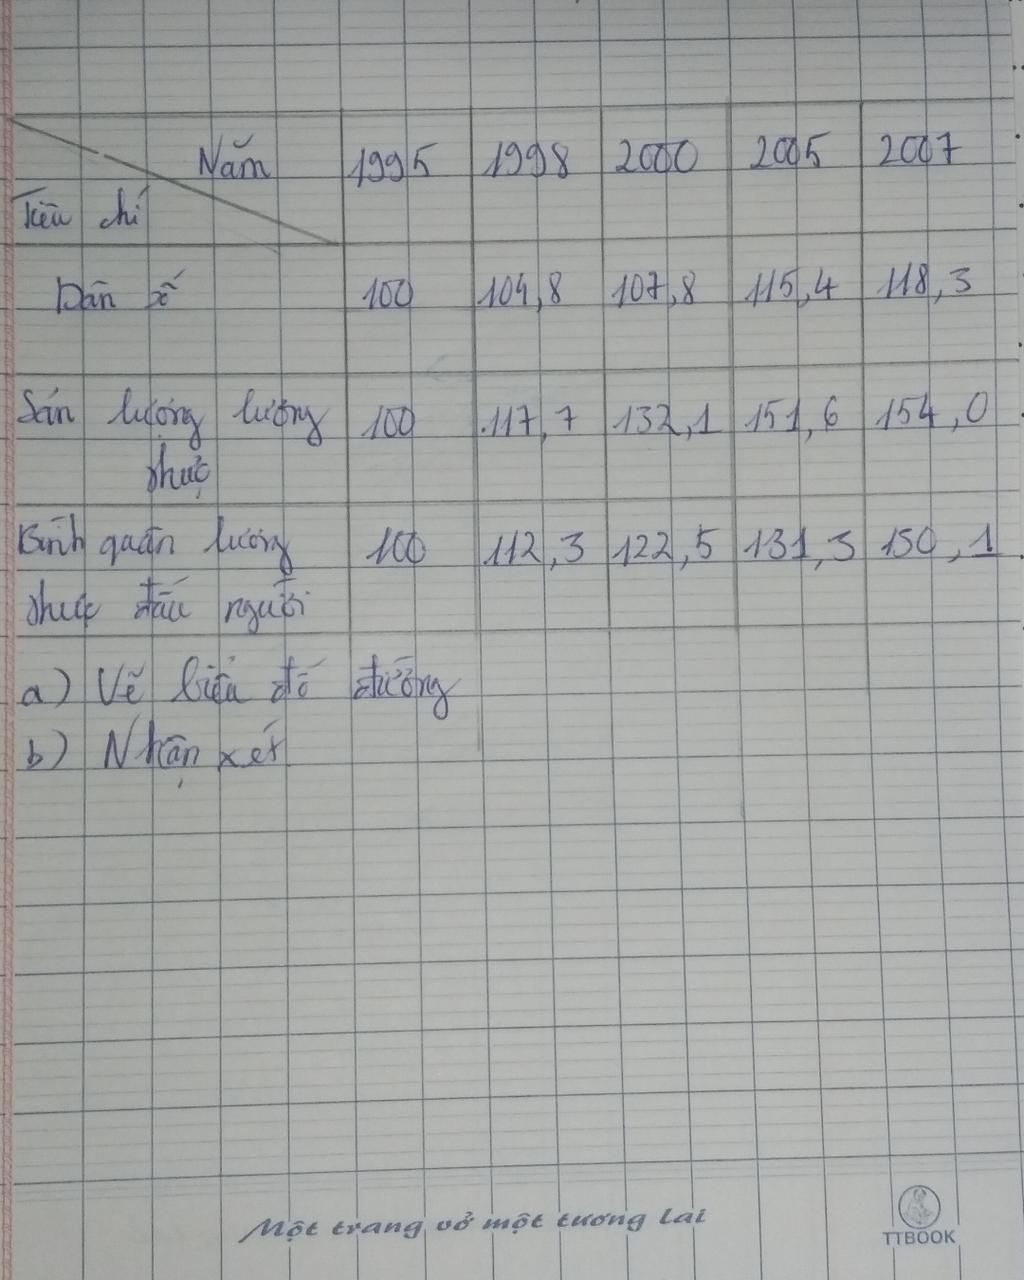 Năm 1995 1998 2000 2005 2007
Tiêu chí
Dân số 100 104,8 107,8 115,4 118,3
Sản lượng lương 100 117,7 132,1 151,6 154,0
thực
Bình quân lương 100 112,3 122,5 131,3 150,1
thực đầu người
a) Vẽ biểu đồ đường
b) Nhận xét
Một trang vở một tương lai
TTBOOK